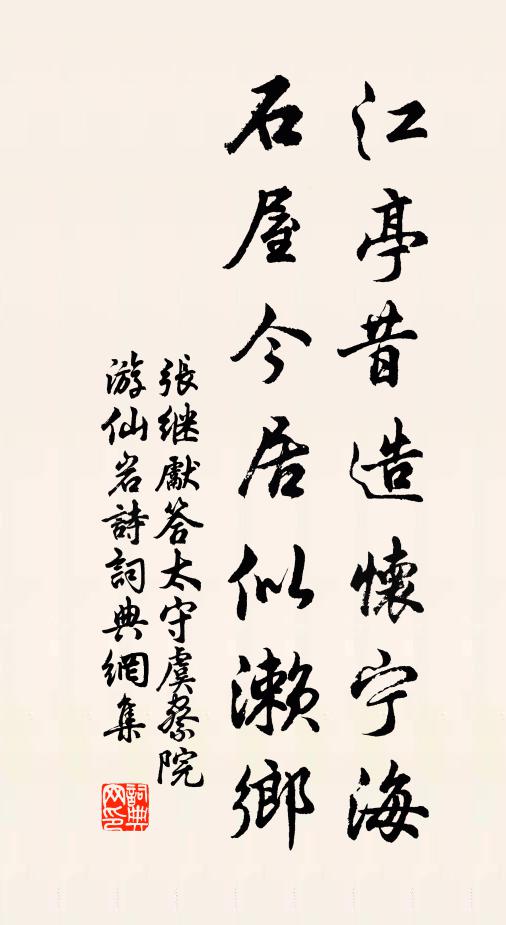 江亭昔造懷宁海
石屋今居似濑鄉
張继獻答太守虞察院
游仙岩詩詞典網集
詞典网印